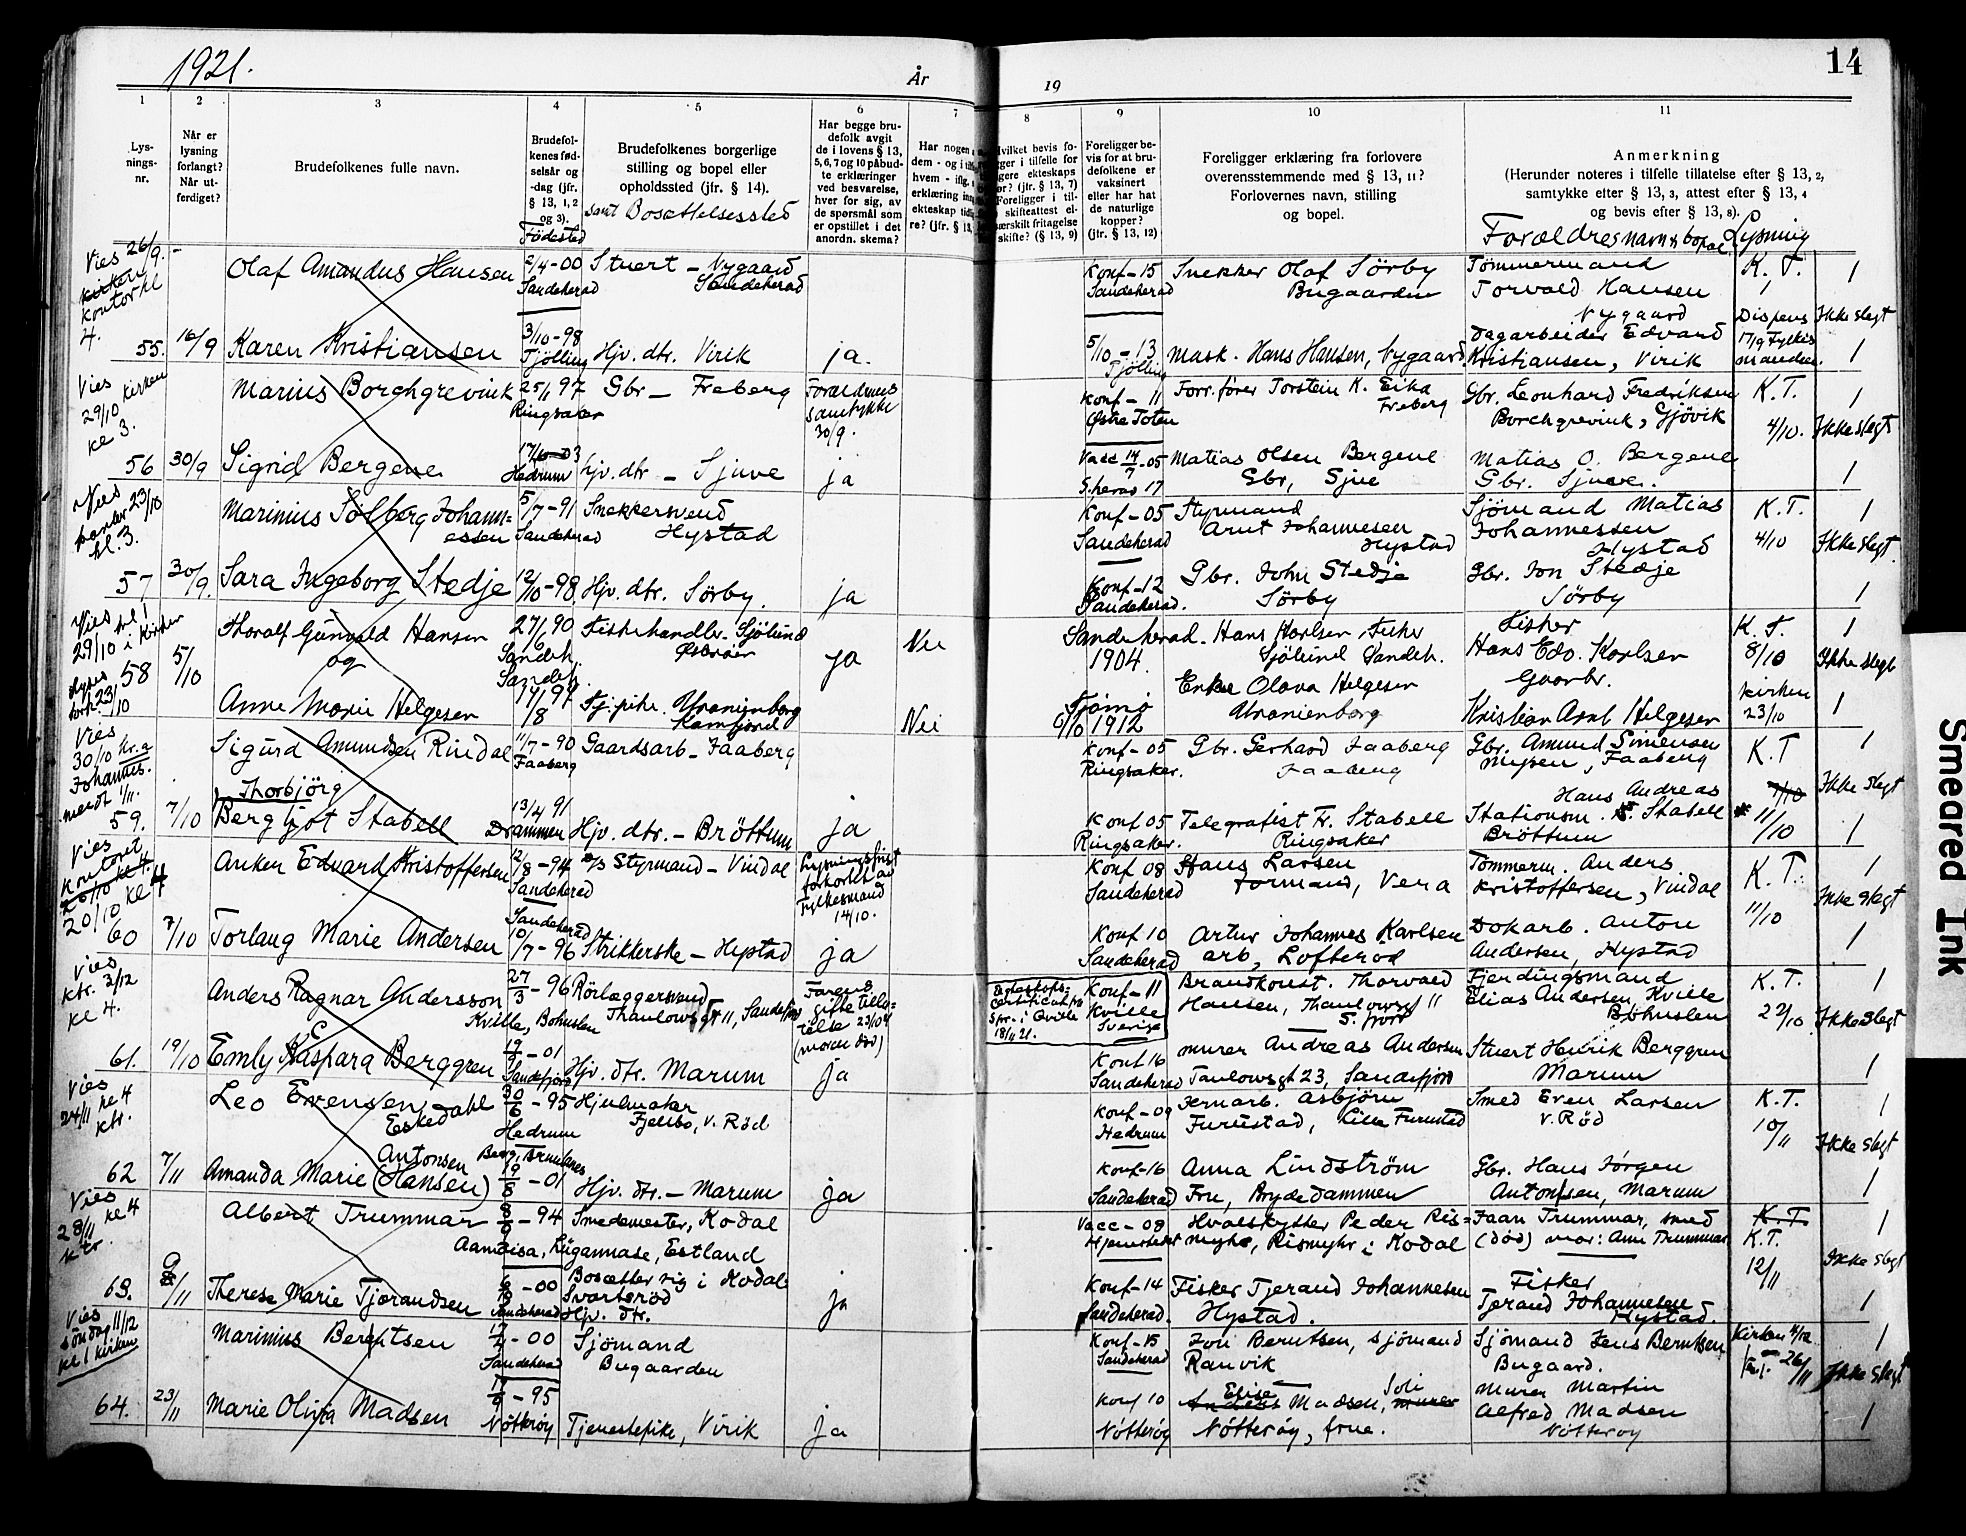 1921.
År
19
14
1 2 3 4 5 6 7 8 9 10 11
Lys-
nings-
nr.
Når er
lysning
forlangt?
Når ut-
ferdiget?
Brudefolkenes fulle navn.
Brudefol-
kenes fød-
selsår og
-dag (jfr.
§ 13, 1, 2
og 3).
Fødested
Brudefolkenes borgerlige
stilling og bopel eller
opholdssted (jfr. § 14).
samt Bosættelsessted
Har begge bru-
defolk avgit
de i lovens § 13,
5, 6, 7 og 10 påbud-
te erklæringer
ved besvarelse,
hver for sig, av
de spørsmål som
er opstillet i det
anordn. skema?
Har nogen
dem - og i
hvem - iflg.
erklæring
ekteskap
re? (jfr. § 13,
Hvilket bevis fo-
i tilfelle for
ekteskaps
? (jfr. § 13, 7)
Foreligger i til-
skifteattest el-
særskilt fritagelse
skifte? (§ 13, 9)
Foreligger be-
vis for at bru-
defolkene er
vaksinert
eller har hat
de naturlige
kopper?
(jfr. § 13, 12)
Foreligger erklæring fra forlovere
overensstemmende med § 13, 11?
Forlovernes navn, stilling
og bopel.
Anmerkning
(Herunder noteres i tilfelle tillatelse efter § 13, 2,
samtykke efter § 13, 3, attest efter § 13, 4
og bevis efter § 13, 8).
Forældres navn & bopæl Lysning
Vies 26/9.
kirken
kontor kl
4.
Olaf Amandus Hansen 2/4-00 Stuert - Nygaard
Sandeherad Sandeherad
Konf-15 Snekker Olaf Sörby Tömmermand K. T. 1
Sandeherad Bugaarden Torvald Hansen
Nygaard Dispens Ikke slegt
55. 16/9 Karen Kristiansen 3/10-98 Tjölling Hjv. dtr. Virik ja.
5/10-13 Tjölling Mask. Hans Hansen, Nygaard Dagarbeider Edvard
Kristiansen, Virik 17/9 Fylkes
manden. 1
Vies
29/10 kirken
kl 3.
Marius Borchgrevink 25/1 97 Gbr - Freberg Forældrenes
Ringsaker samtykke
30/9.
Konf-11 Forr.fører Torstein K. Eika Gbr. Leonhard Fredriksen K.T. 1
Østre Toten Freberg Borchgrevink, Gjövik 4/10. Ikke slegt
56 30/9 Sigrid Bergene 17/10-03 Hedrum Hjv. dtr - Sjuve ja
Vacc 14/7-05 Matias Olsen Bergene Matias O. Bergene
S.herad 17 Gbr, Sjue Gbr. Sjuve. 1
Vies
23/10
kl. 3.
Marinius Solberg Johann= 5/7-91 Snekkersvend
essen Sandeherad Hystad
Konf-05 Styrmand Sjömand Matias K.T. 1
Sandeherad Arnt Johannesen Johannessen
Hystad Hystad 4/10 Ikke slegt.
57 30/9. Sara Ingeborg Stedje 12/10-98 Hjv. dtr. Sörby. ja
Konf-12 Gbr. John Stedje Gbr. Jon Stedje
Sandeherad. Sörby Sörby 1
Vies kl 1
29/10 i kirken
Thoralf Gunvald Hansen 27/6 90 Fiskehandler. Sjölund
og Sandeh. ja Nei
Sandeherad. Hans Karlsen, Fisker Fisker K. T. 1
1904. Sjölund Sandeh. Hans Edv. Karlsen 8/10 Ikke slegt
58 5/10
Sandeh. Enke Olava Helgesen Gaarbr.
Anne Marie Helgesen 17/8 97 Tj.pike. Uranienborg
Ramfjord Nei
Tjömö
6/10 1912 Uranienborg Kristian Arnt Helgesen kirken
23/10 1
Vies
30/10 kr.a
Johannis.
meldt 1/11.
Sigurd Amundsen Rindal 11/7-90 Gaardsarb - Faaberg
Faaberg
Konf-05 Gbr. Gerhard Faaberg Gbr. Amund Simensen K.T 1
Ringsaker. Faaberg Mysen, Faaberg
Ikke slegt
Thorbjörg
59. 7/10 Bergljot Stabell 13/4 91 Drammen Hjv. dtr. - Bröttum ja
Konf 05 Telegrafist Fr. Stabell Hans Andreas 7/10
Stationsm. F. Stabell
Ringsaker. Ringsaker Bröttum 11/10 1
Vies
kontoret
20/10 kl 4.
20/10 kl 4
Anker Edvard Kristoffersen 12/8-94 Styrmand - Vindal Lysningsfrist
Sandeherad forkortet av
Fylkesmand
14/10.
Konf 08 Hans Larsen Tömmerm. Anders K.T. 1
Sandeherad Formand, Vera Kristoffersen, Vindal Ikke slegt
11/10
60 7/10 Torlaug Marie Andersen Sandeherad
10/7-96 Strikkerske - Hystad ja
Konf 10 Artur Johannes Karlsen Dokarb. Anton
Sandeherad arb, Lofterod Andersen, Hystad 1
Vies
ktr. 3/12
kl 4.
Anders Ragnar Andersson 27/3-96 Rörlæggersvend
Kville, Bohuslen Thaulowsgt 11, Sandefjord
Farens
gifte tilla=
telse 23/10
(moren død)
Egteskaps-
certificat fra
Spr. i Qville
18/11 21.
Konf-11
Kville
Sverige
Brandkonst. Thorvald Fjerdingsmand K.T. 1
Hansen, Thaulowsgt 11 Elias Andersen, Kville
S.fjord Bohuslen 22/10 Ikke slegt
61. 19/10 Emly Kaspara Berggren 19/9-01 Sandefjord Hjv. dtr. Marum ja
Konf 16 murer Andreas Andersen Stuert Henrik Berggren
Sandeherad Taulowsgt 23, Sandefjord Marum 1
Vies
24/11 kl 4
ktr.
Leo Evensen 30/6-95 Hjulmaker
Eskedahl Hedrum Fjellbo, v. Röd
Konf-09 Jernarb. Asbjörn Smed Even Larsen K.T. 1
Hedrum Furustad, Lille Furustad v. Röd 10/11 Ikke slegt
Antonsen Berg, Brunlanes
62 7/11 Amanda Marie (Hansen) 19/8-01 Hjv. dtr. - Marum ja
Konf-16 Anna Lindström Gbr. Hans Jørgen
Sandeherad Fru, Brydedammen Antonsen, Marum 1
Vies
28/11 kl 4
ktr
Albert Trummar 8/9-94 Smedemester, Kodal
Aamdisa, Lüganuse, Estland
Vacc-08 Hvalskytter Peder Ris= Jaan Trummar, smed K.T. 1
Hjemstedet myhr, Rismyhr i Kodal (død) mor: Ann Trummar K.T.
12/11 Ikke slegt
63. 9/11 Therese Marie Tjerandsen 6/8-00 Bosætter sig i Kodal.
Svarterød
Sandeherad Hjv. dtr. ja
Konf-14 Fisker Tjerand Johannesen Fisker
Sandeherad. Hystad. Tjerand Johannesen
Hystad. 1
Vies
söndag 11/12
kl 1 kirken
Marinius Berntsen 17/2-00 Sjömand
Sandeherad Bugaarden
Konf-15 Joh Berntsen, sjömand Sjömand Jens Berntsen Kirken 4/12 1
Sandeherad Ranvik Bugaard. 26/11 Ikke slegt
64. 23/11 Marie Olivia Madsen 17/6-95
Nötteröy Tjenestepike, Virik ja
Konf 10 Elise Madsen, murer Murer Martin
Nötteröy Nötteröy, frue. Alfred Madsen
Nötteröy 1
Smeared Ink